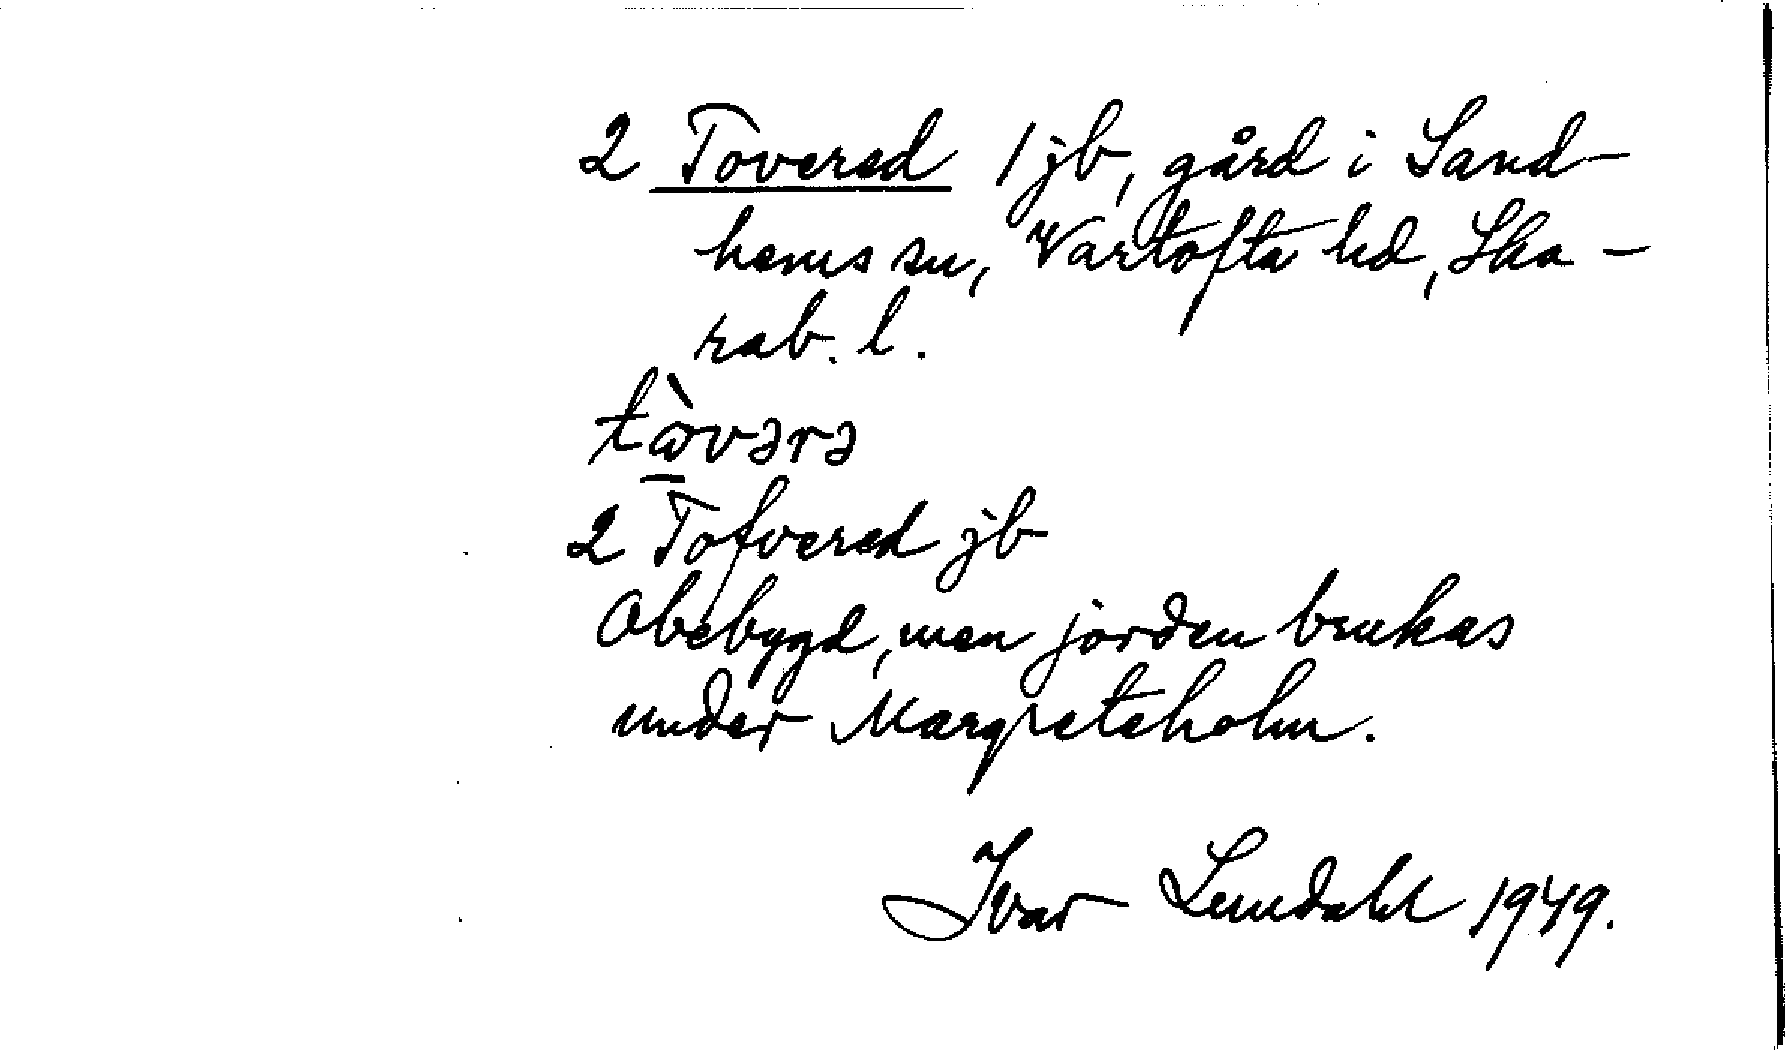 2 Tovered 1 jb, gård i Sand-
hems sn, Vartofta hd, Ska-
rab. l.
tàvərə
2 Tofvered jb
Obebygd, men jorden brukas
under Margreteholm.
Ivar Lundahl 1949.